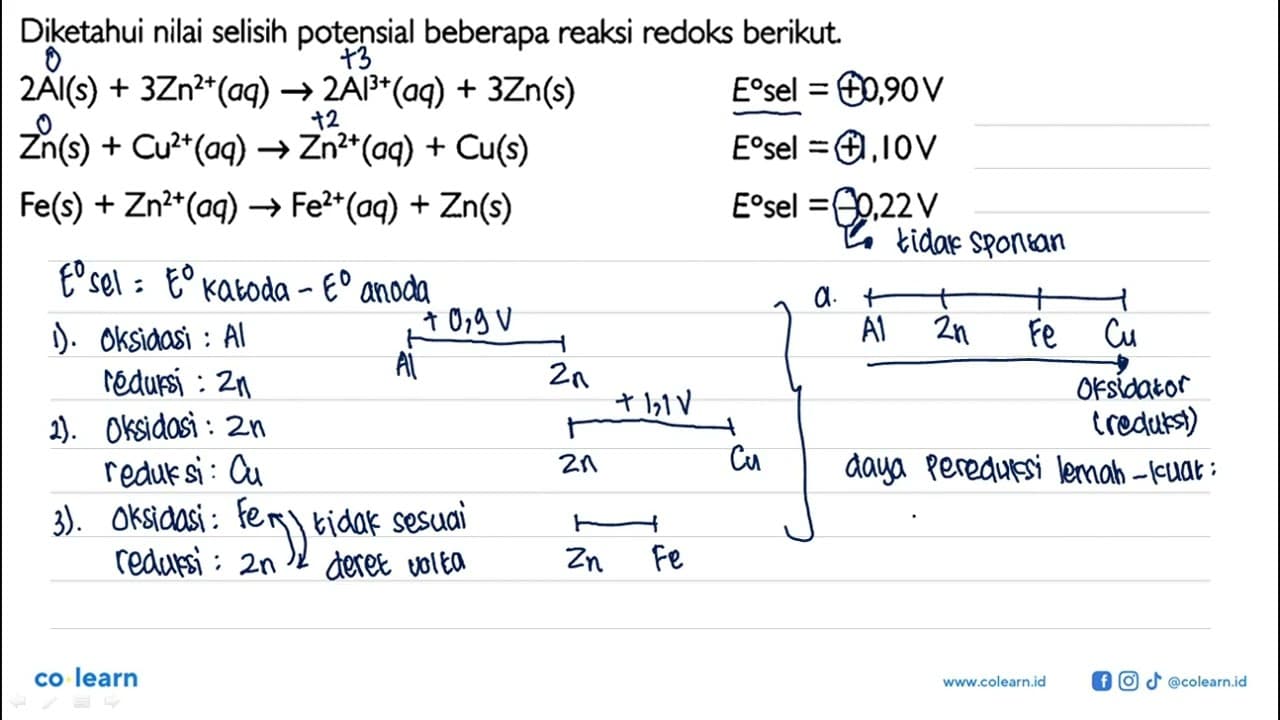 Diketahui nilai selisih potensial beberapa reaksi redoks berikut.
0 +3
2Al(s) + 3Zn²⁺(aq) → 2Al³⁺(aq) + 3Zn(s) E°sel = +0,90 V
0 +2
Zn(s) + Cu²⁺(aq) → Zn²⁺(aq) + Cu(s) E°sel = +1,10 V
Fe(s) + Zn²⁺(aq) → Fe²⁺(aq) + Zn(s) E°sel = –0,22 V
tidak spontan
E⁰sel = E⁰ katoda - E⁰ anoda
1). Oksidasi : Al
reduksi : Zn
+ 0,9 V
Al Zn
2). Oksidasi : Zn
reduksi : Cu
+ 1,1 V
Zn Cu
3). Oksidasi : Fe
reduksi : Zn
tidak sesuai
deret volta
Zn Fe
a.
Al Zn Fe Cu
Oksidator
(reduksi)
daya Pereduksi lemah - kuat :
co learn
www.colearn.id
@colearn.id